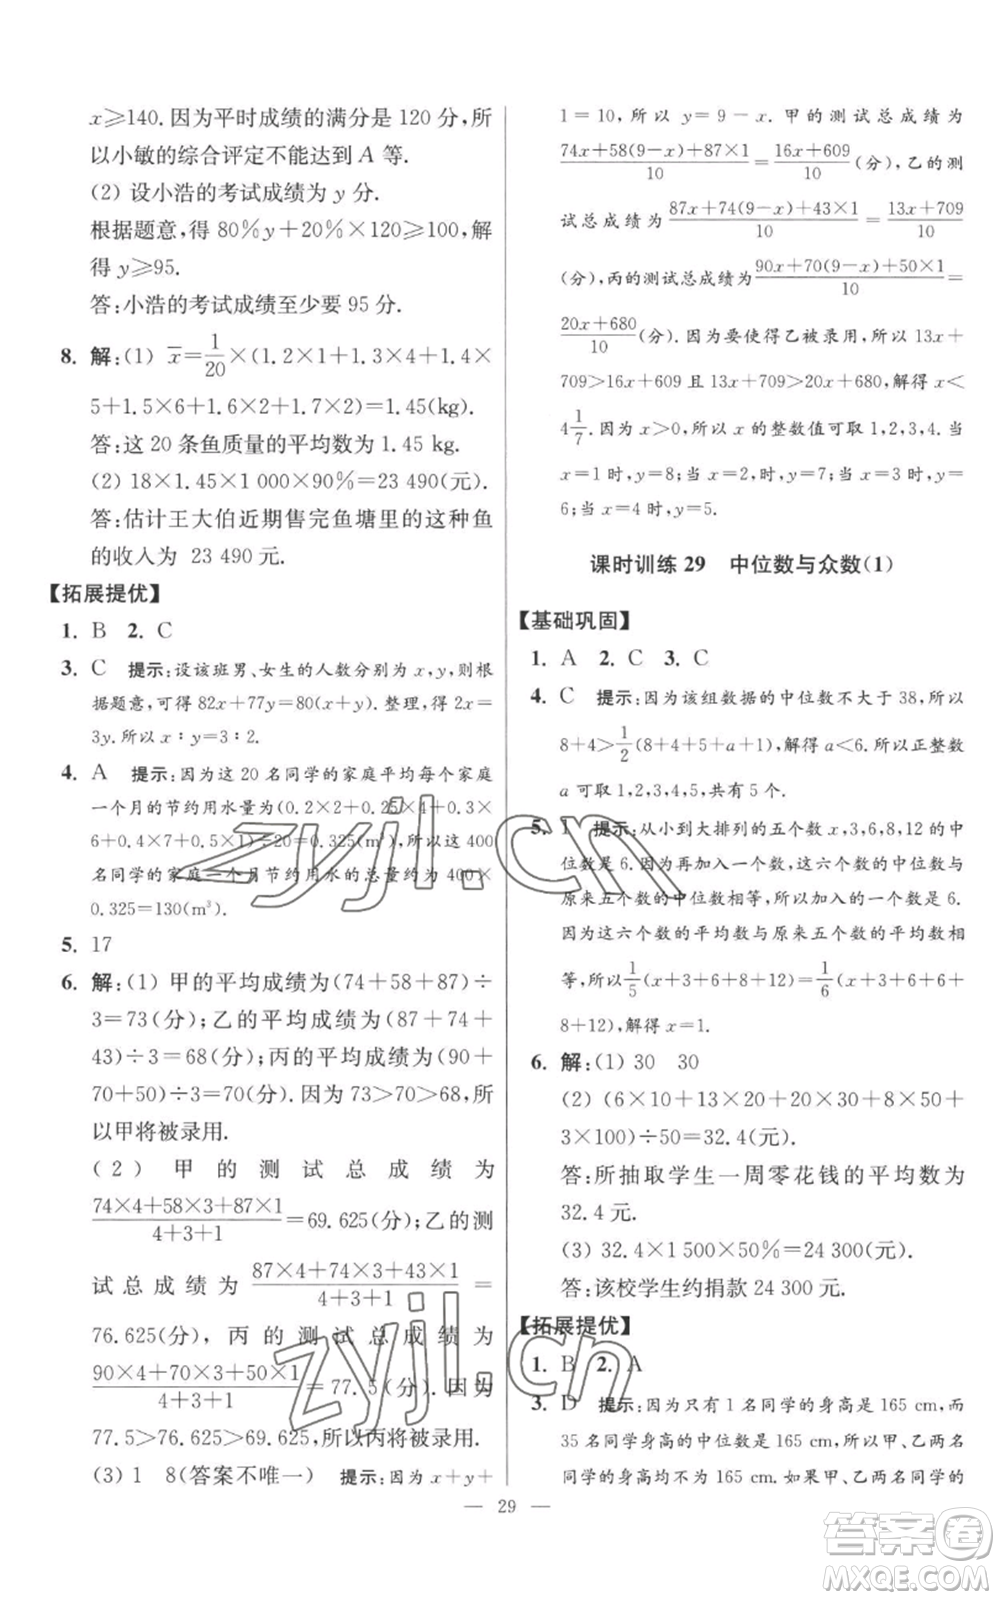 x≥140. 因为平时成绩的满分是 120 分,所
以小敏的综合评定不能达到 A 等.
(2) 设小浩的考试成绩为 y 分.
根据题意,得 80%y+20%×120≥100,解
得 y≥95.
答:小浩的考试成绩至少要 95 分.
8. 解:(1) x̄=1/20×(1.2×1+1.3×4+1.4×
5+1.5×6+1.6×2+1.7×2)=1.45(kg).
答:这 20 条鱼质量的平均数为 1.45 kg.
(2) 18×1.45×1 000×90%=23 490(元).
答:估计王大伯近期售完鱼塘里的这种鱼
的收入为 23 490 元.
【拓展提优】
1. B 2. C
3. C 提示:设该班男、女生的人数分别为 x,y,则根
据题意,可得 82x+77y=80(x+y). 整理,得 2x=
3y. 所以 x∶y=3∶2.
4. A 提示:因为这 20 名同学的家庭平均每个家庭
一个月的节约用水量为(0.2×2+0.25×4+0.3×
6+0.4×7+0.5×1)÷20=0.325(m³),所以这 400
名同学的家庭一个月节约用水的总量约为 400×
0.325=130(m³).
5. 17
6. 解:(1) 甲的平均成绩为(74+58+87)÷
3=73(分);乙的平均成绩为(87+74+
43)÷3=68(分);丙的平均成绩为(90+
70+50)÷3=70(分). 因为 73>70>68,所
以甲将被录用.
(2) 甲的测试总成绩为
(74×4+58×3+87×1)/(4+3+1)=69.625(分);乙的测
试总成绩为 (87×4+74×3+43×1)/(4+3+1)=
76.625(分),丙的测试总成绩为
(90×4+70×3+50×1)/(4+3+1)=77.5(分). 因为
77.5>76.625>69.625,所以丙将被录用.
(3) 1 8(答案不唯一) 提示:因为 x+y+
1=10,所以 y=9-x. 甲的测试总成绩为
(74x+58(9-x)+87×1)/10=(16x+609)/10(分),乙的测
试总成绩为 (87x+74(9-x)+43×1)/10=(13x+709)/10
(分),丙的测试总成绩为(90x+70(9-x)+50×1)/10=
(20x+680)/10(分). 因为要使得乙被录用,所以 13x+
709>16x+609 且 13x+709>20x+680,解得 x<
4 1/7. 因为 x>0,所以 x 的整数值可取 1,2,3,4. 当
x=1 时,y=8;当 x=2 时,y=7;当 x=3 时,y=
6;当 x=4 时,y=5.
课时训练 29 中位数与众数(1)
【基础巩固】
1. A 2. C 3. C
4. C 提示:因为该组数据的中位数不大于 38,所以
8+4>1/2(8+4+5+a+1),解得 a<6. 所以正整数
a 可取 1,2,3,4,5,共有 5 个.
5. 1 提示:从小到大排列的五个数 x,3,6,8,12 的中
位数是 6. 因为再加入一个数,这六个数的中位数与
原来五个数的中位数相等,所以加入的一个数是 6.
因为这六个数的平均数与原来五个数的平均数相
等,所以1/5(x+3+6+8+12)=1/6(x+3+6+6+
8+12),解得 x=1.
6. 解:(1) 30 30
(2) (6×10+13×20+20×30+8×50+
3×100)÷50=32.4(元).
答:所抽取学生一周零花钱的平均数为
32.4 元.
(3) 32.4×1 500×50%=24 300(元).
答:该校学生约捐款 24 300 元.
【拓展提优】
1. B 2. A
3. D 提示:因为只有 1 名同学的身高是 165 cm,而
35 名同学身高的中位数是 165 cm,所以甲、乙两名
同学的身高均不为 165 cm. 如果甲、乙两名同学的
— 29 —
zyjl.cn
zyjl.cn
答案圈
MXQE.COM